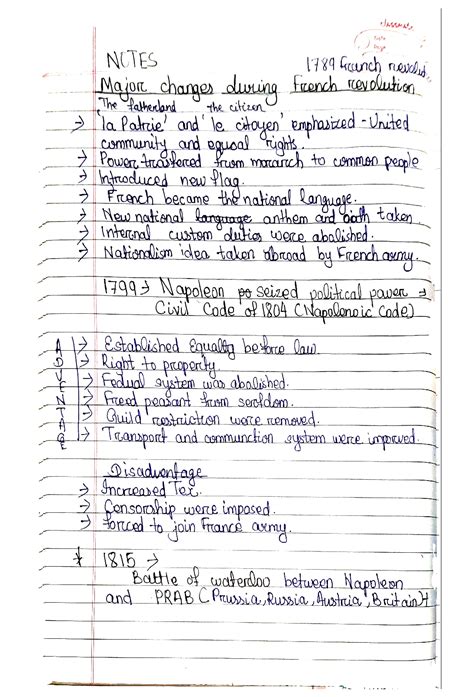 classmate
Date
Page
NOTES
1789 French revolut.
Major changes during French revolution
The fatherland the citizen
→ 'la Patrie' and 'le citoyen' emphasized - United
community and equoal rights.
→ Power trasfered from monarch to common people
→ Introduced new flag.
→ French became the national language.
→ New national language anthem and oath taken
→ Internal custom duties were abolished.
→ Nationalism idea taken abroad by French army.
1799 → Napoleon po seized political power →
Civil Code of 1804 (Napolenoic Code)
ADVENTAGE
→ Established Equality before law.
→ Right to property
→ Fedual system was abolished.
→ Freed peasant from serfdom.
→ Guild restriction were removed.
→ Transport and communction system were improved.
Disadventage
→ Increased Tax.
→ Censorship were imposed.
→ forced to join France army.
1815 →
Battle of waterloo between Napoleon
and PRAB (Prussia, Russia, Austria, Britain)